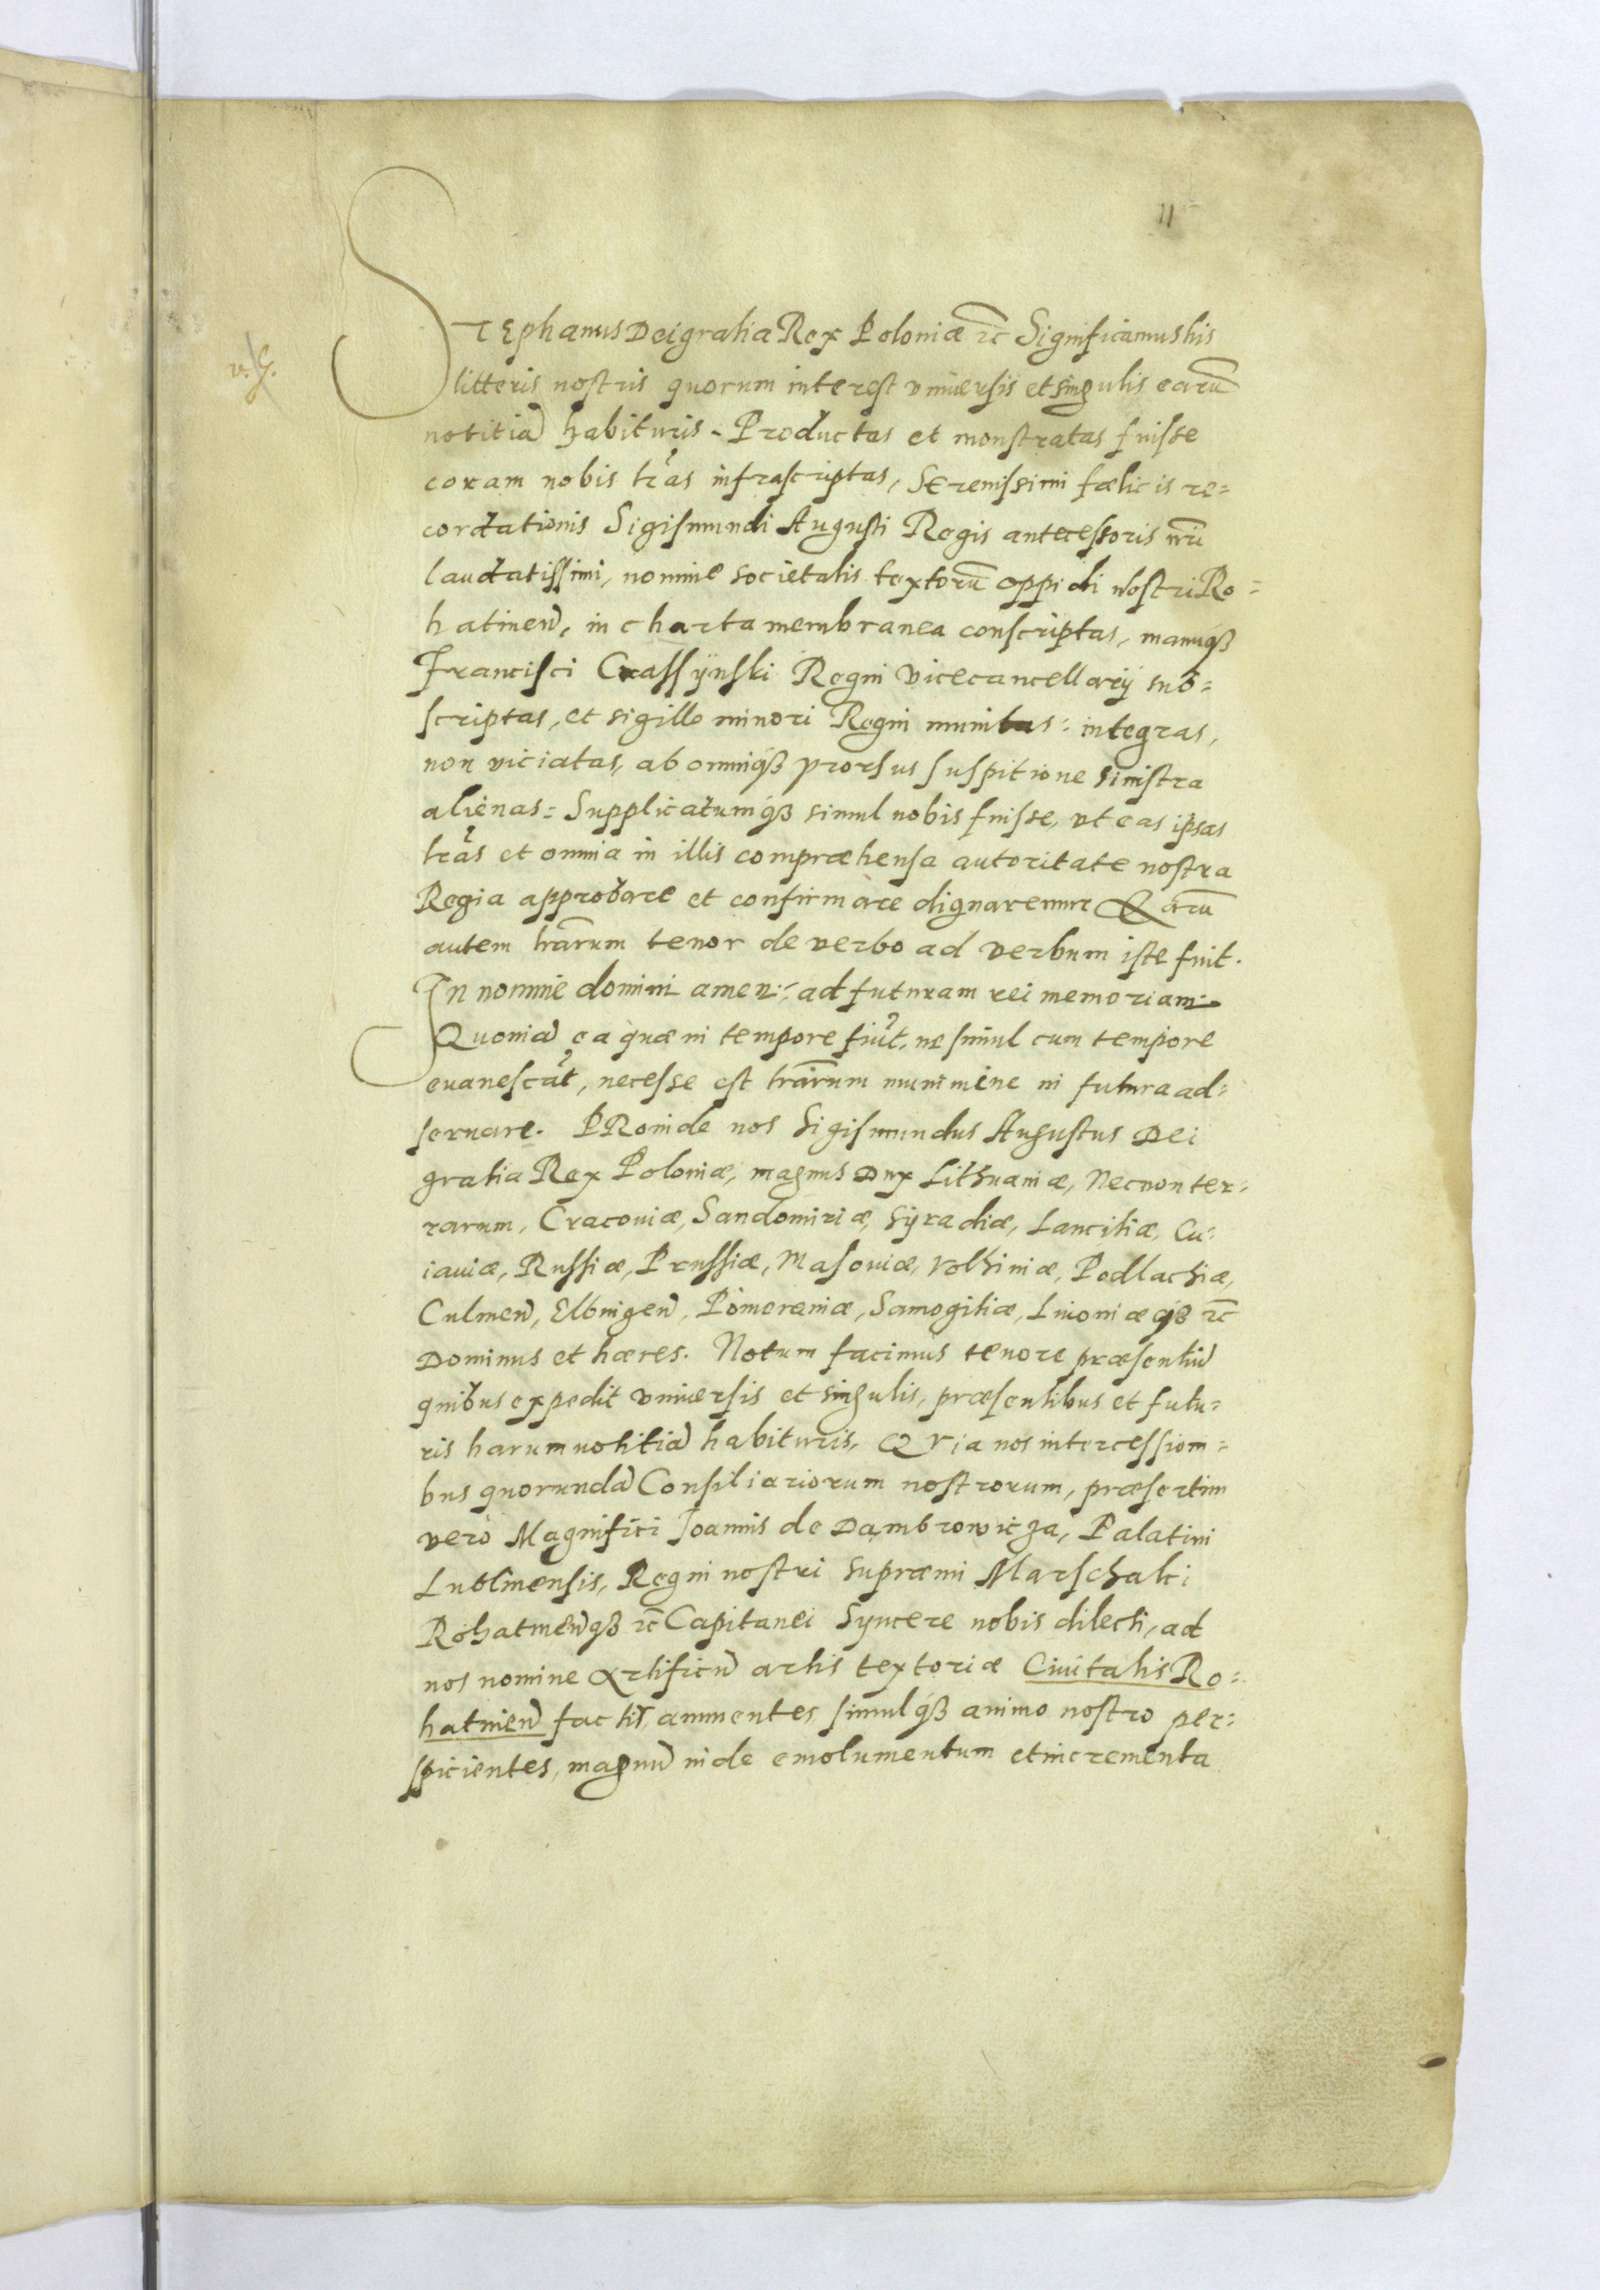 11
v. G.
STEphanus Dei gratia Rex Poloniæ ꝛc Significamus his
litteris nostris quorum interest vniuersis et singulis earū
notitiā habituris - Productas et monstratas fuisse
coram nobis lr̃as infrascriptas, Serenissimi fœlicis re=
cordationis Sigismundi Augusti Regis antecessoris nr̃i
laudatissimi, nomine societatis textorū oppidi nostri Ro=
hatineñ, in charta membranea conscriptas, manuqꝫ
Francisci Crassÿnski Regni Vicecancellarÿ sub=
scriptas, et sigillo minori Regni munitas: integras,
non viciatas, ab omniqꝫ prorsus suspitione sinistra
alienas = Supplicatumqꝫ simul nobis fuisse, vt eas ipsas
lr̃as et omnia in illis compræhensa autoritate nostra
Regia approbare et confirmare dignaremur Quarū
autem lr̃arum tenor de verbo ad verbum iste fuit.
In nomine domini amen: ad futuram rei memoriam.
Quoniā ea quæ in tempore fiūt, ne simul cum tempore
euanescāt, necesse est lr̃arum munimine in futura ad=
seruare. PRoinde nos Sigismundus Augustus Dei
gratia Rex Poloniæ, magnus Dux Lithuaniæ, Necnon ter=
rarum, Cracouiæ, Sandomiriæ, Syradiæ, Lancitiæ, Cu=
iauiæ, Russiæ, Prussiæ, Masouiæ, Volhiniæ, Podlachiæ,
Culmeñ, Elbingeñ, Pomeraniæ, Samogitiæ, Liuoniæqꝫ ꝛc
Dominus et hæres. Notum facimus tenore præsentiū
quibus expedit vniuersis et singulis, præsentibus et futu=
ris harum notitiā habituris, QVia nos intercession=
bus quorundā Consiliariorum nostrorum, præsertim
verò Magnifici Joannis de Dambrowicza, Palatini
Lublinensis, Regni nostri supræmi Marschalci
Rohatineñqꝫ ꝛc Capitanei Syncere nobis dilecti, ad
nos nomine Artificū artis textoriæ Ciuitatis Ro=
hatineñ factis, annuentes simulqꝫ animo nostro per=
spicientes, magnū inde emolumentum et incrementa